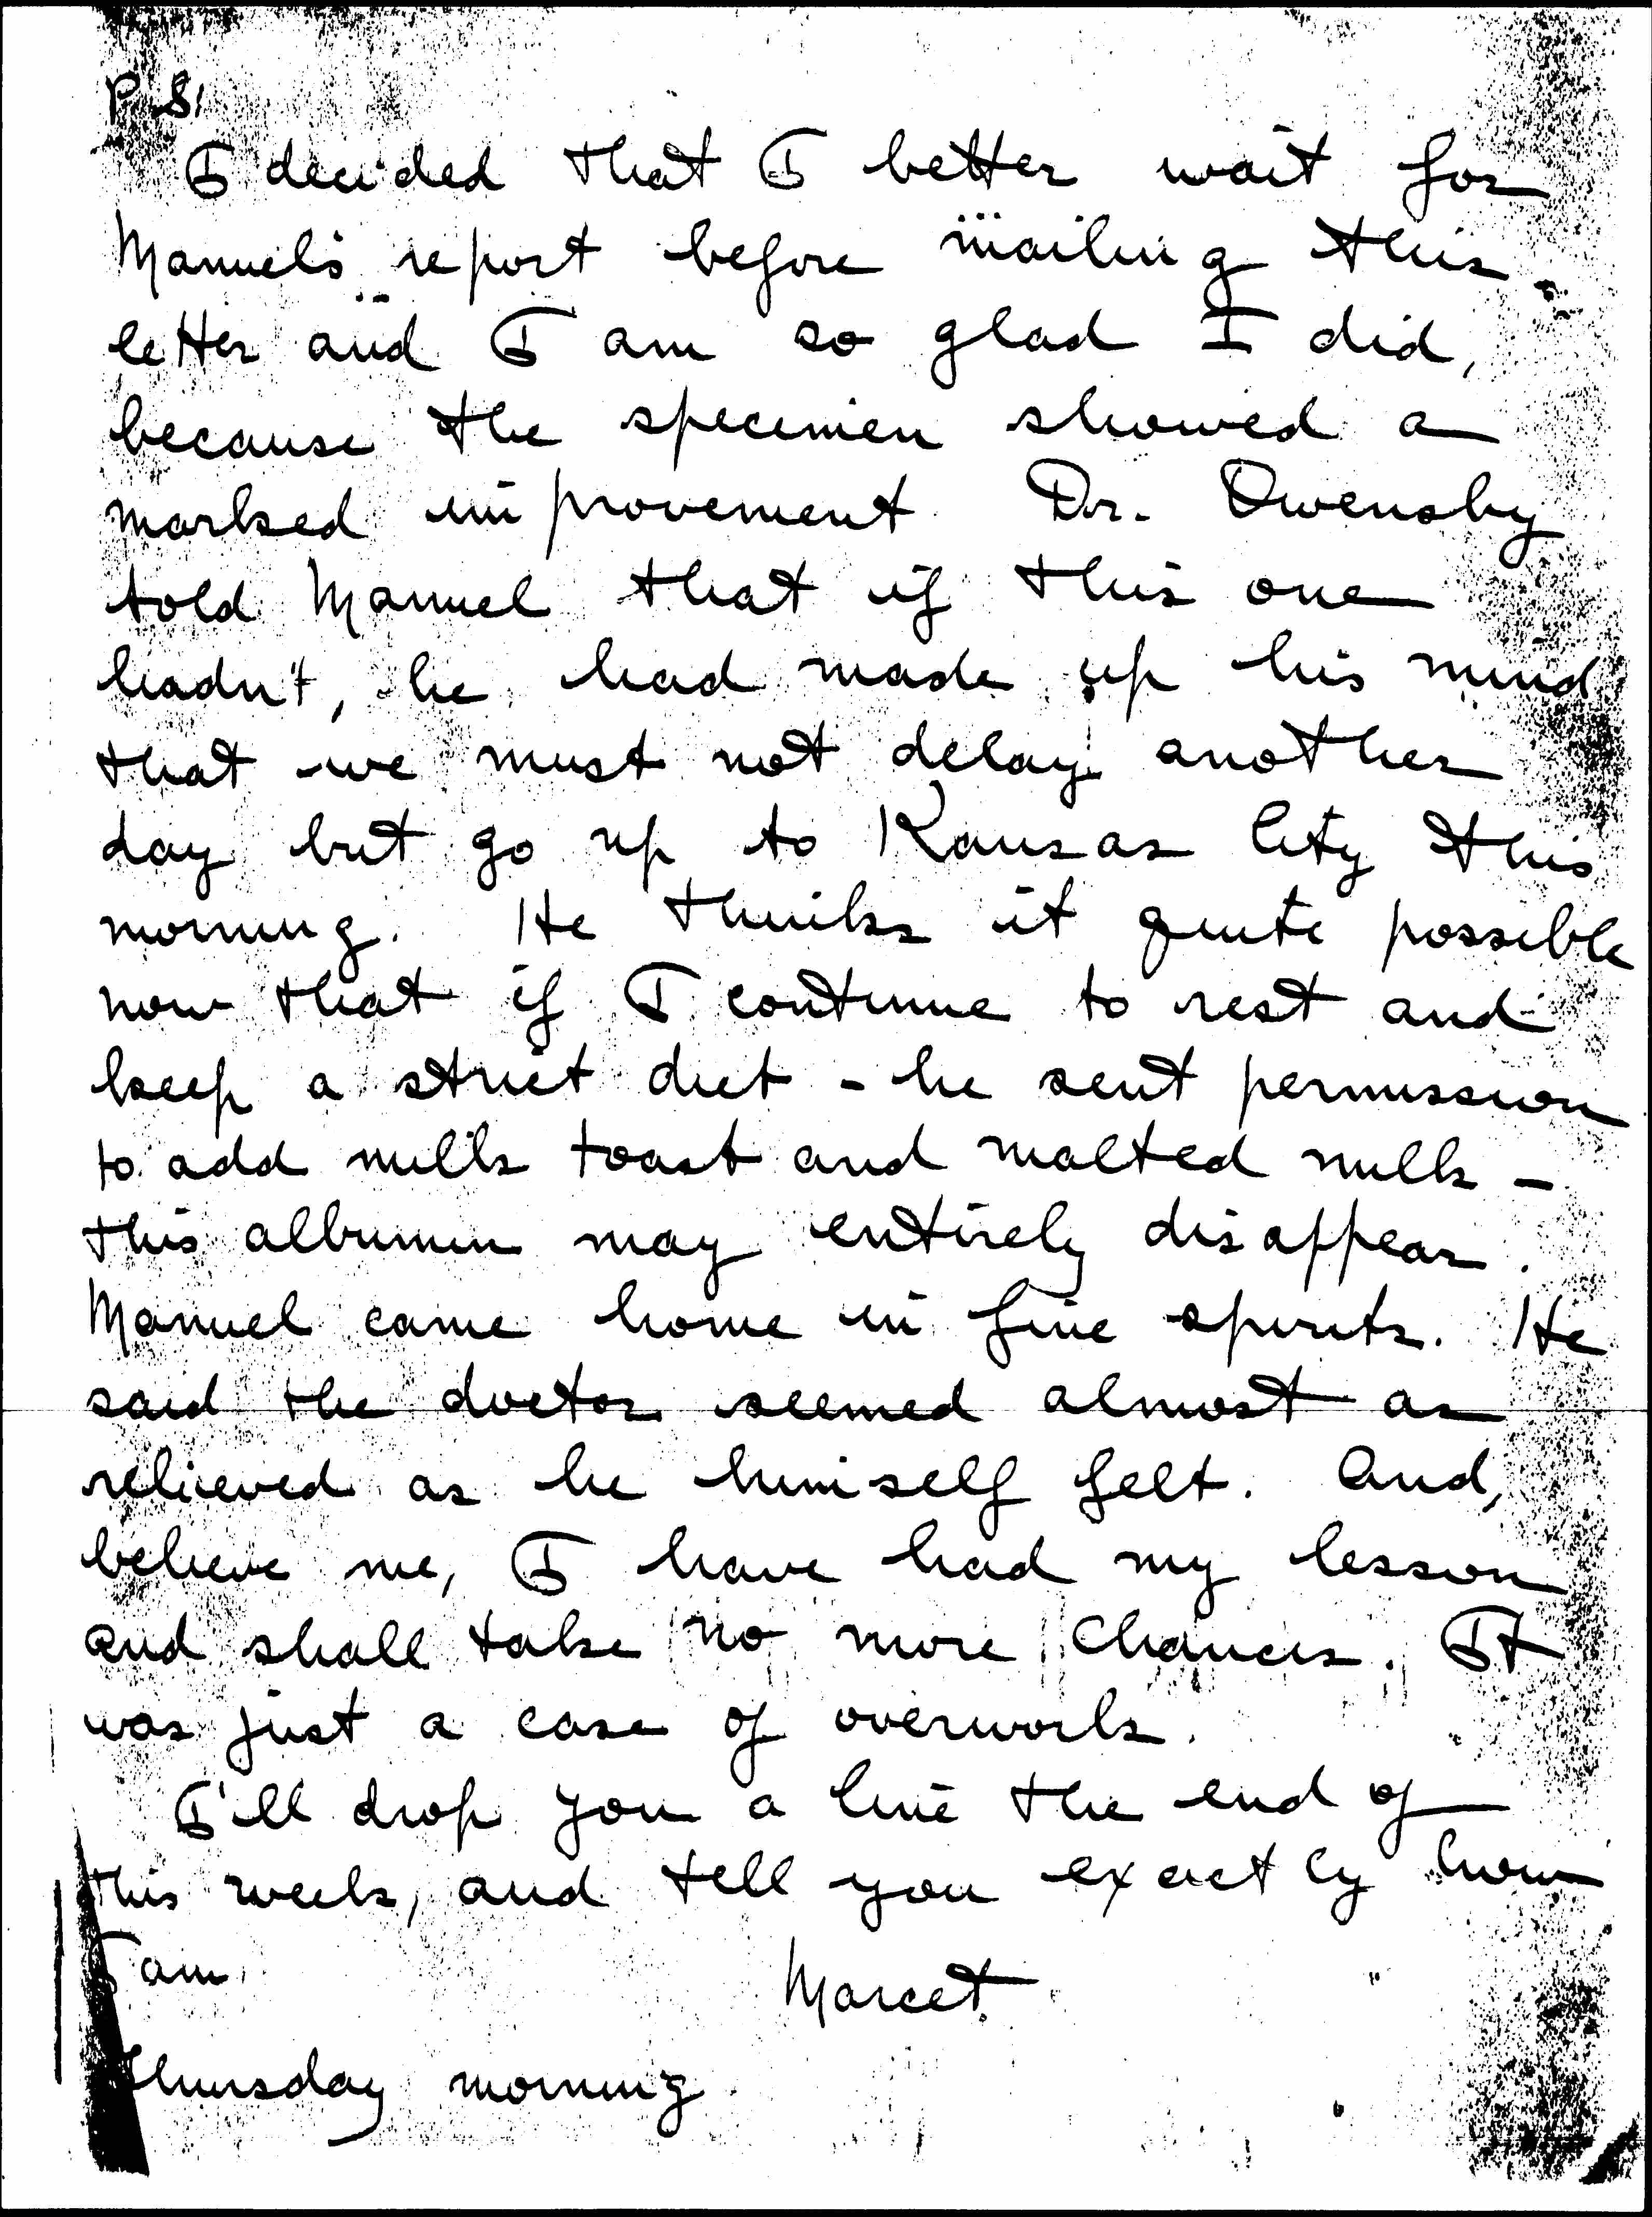 P.S.
I decided that I better wait for
Manuel's report before mailing this
letter and I am so glad I did,
because the specimen showed a
marked improvement. Dr. Owensby
told Manuel that if this one
hadn't, he had made up his mind
that we must not delay another
day but go up to Kansas City this
morning. He thinks it quite possible
now that if I continue to rest and
keep a strict diet - he sent permission
to add milk toast and malted milk -
this albumin may entirely disappear.
Manuel came home in fine spirits. He
said the doctor seemed almost as
relieved as he himself felt. And,
believe me, I have had my lesson
and shall take no more chances. It
was just a case of overwork.
I'll drop you a line the end of
this week, and tell you exactly how
I am.
Marcet.
Thursday morning